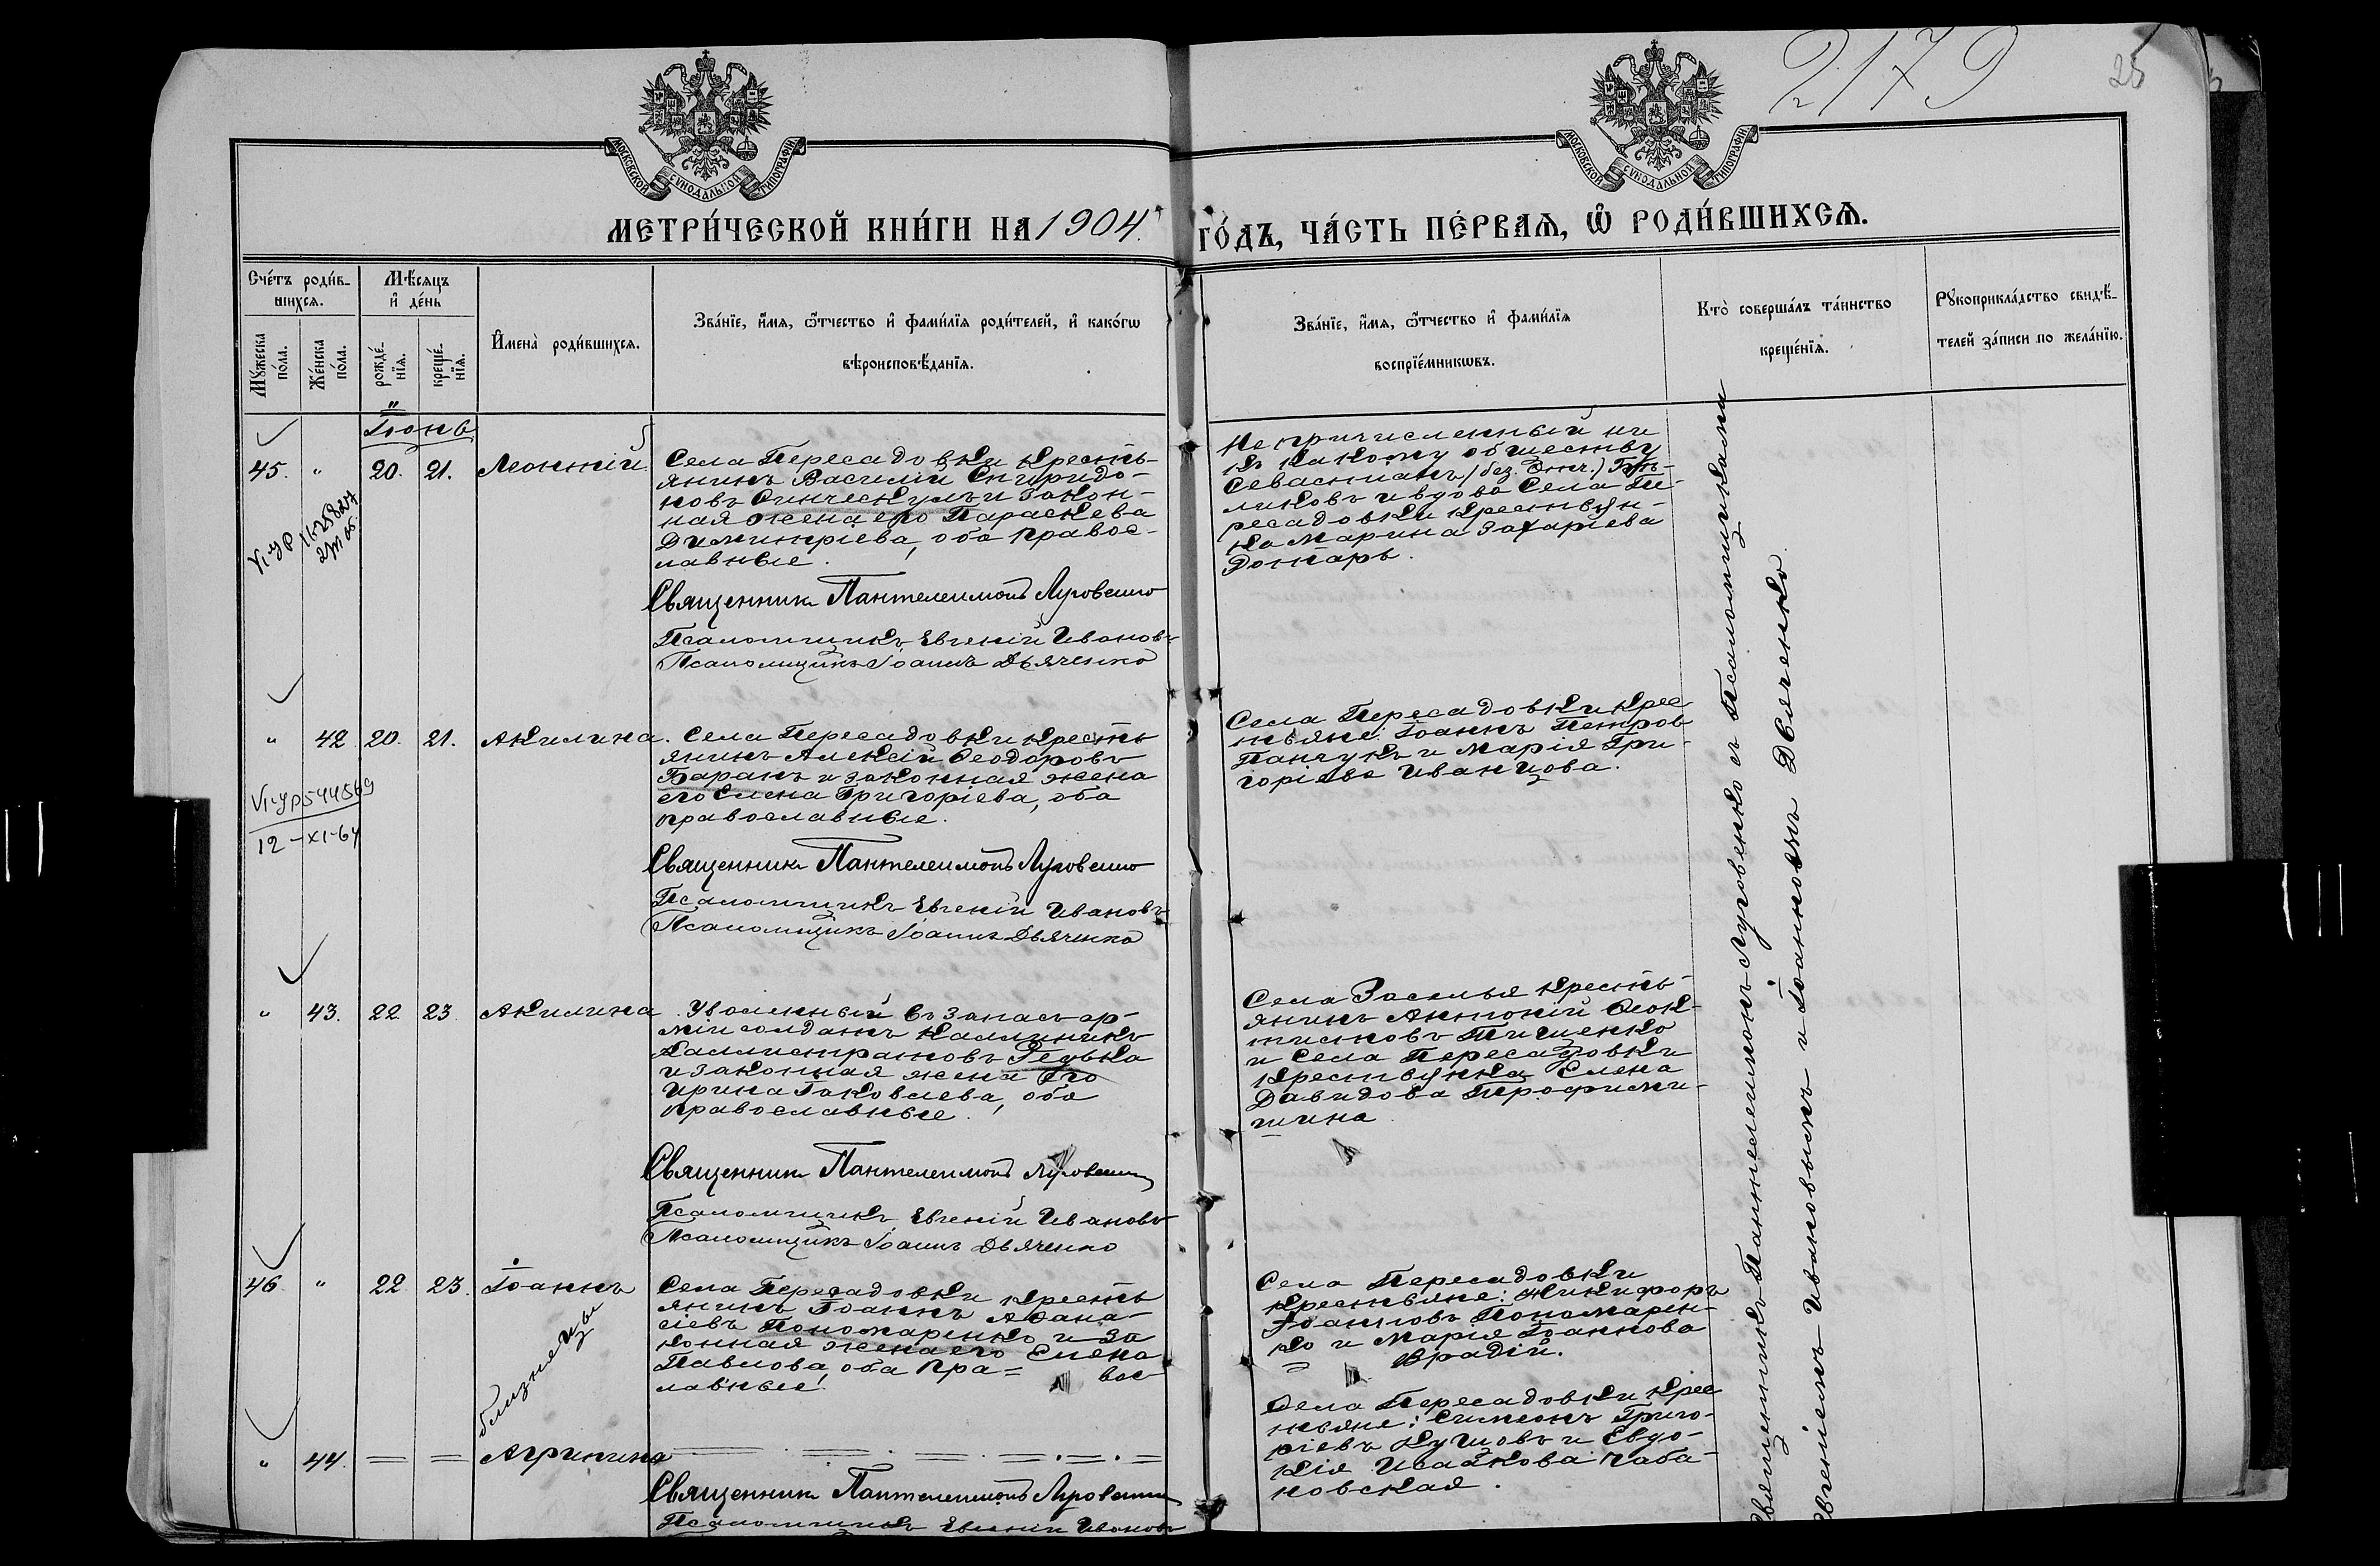 2179
25
МОСКОВСКОЙ СУНОДАЛЬНОЙ ТИПОГРАФІИ
МОСКОВСКОЙ СУНОДАЛЬНОЙ ТИПОГРАФІИ
МЕТРИ́ЧЕСКОЙ КНИ́ГИ НА 1904 ГО́ДЪ, ЧА́СТЬ ПЕ́РВАѦ, Ѽ РОДИ́ВШИХСѦ.
Сче́тъ роди́в-
шихсѧ.
Мꙋ́жеска
по́ла.
Же́нска
по́ла.
Мѣ́сѧцъ
и҆ де́нь
рожде́-
нїѧ.
креще́-
нїѧ.
И҆мена̀ роди́вшихсѧ.
Зва́нїе, и҆́мѧ, ѻ҆́тчество и҆ фами́лїѧ роди́телей, и҆ како́гѡ
вѣроисповѣ́данїѧ.
Зва́нїе, и҆́мѧ, ѻ҆́тчество и҆ фами́лїѧ
воспрїе́мникѡвъ.
Кто̀ соверша́лъ та́инство
креще́нїѧ.
Рꙋкоприкла́дство свидѣ́-
телей за́писи по жела́нїю.
Іюнь
45. " 20. 21. Леонтій.
Села Пересадовки кресть-
янинъ Василій Спиридо-
новъ и закон-
ная жена его Параскева
Димитріева, оба правос-
лавные.
Священникъ Пантелеимонъ Луговенко
Псаломщикъ Евгеній Ивановъ
Псаломщикъ Іоаннъ Дьяченко
Не причисленный ни
къ какому обществу
Севастіанъ (без. Отч.)
ликовъ и вдова Села Пе-
ресадовки крестьян-
ка Марина Захаріева
Дотарь.
" 42 20. 21. Акилина.
VI-УР 544569
12-XI-64
Села Пересадовки кресть
янинъ Алексій Ѳеодоровъ
Баранъ и законная жена
его Елена Григоріева, оба
православные.
Священникъ Пантелеимонъ Луговенко
Псаломщикъ Евгеній Ивановъ
Псаломщикъ Іоаннъ Дьяченко
Села Пересадовки крес
тьяне: Іоаннъ Петровъ
Панчукъ и Марія Гри-
горіева Иванцова.
" 43. 22. 23. Акилина
Уволенный въ запасъ ар-
міи солдатъ Каллиникъ
Каллистратовъ Редька
и законная жена его
Ирина Іаковлева, оба
православные.
Священникъ Пантелеимонъ Луговенко
Псаломщикъ Евгеній Ивановъ
Псаломщикъ Іоаннъ Дьяченко
Села Заселья кресть-
янинъ Антоній Ѳеок-
тистовъ Тищенко
и Села Пересадовки
крестьянка Елена
Давидова Трофими-
шина
46. " 22. 23. Іоаннъ
близнецы
Села Пересадовки кресть
янинъ Іоаннъ Аѳана-
сіевъ Пономаренко и за
конная жена его Елена
Павлова, оба пра= вос
лавные.
Села Пересадовки
крестьяне: Никифоръ
Іоанновъ Пономарен-
ко и Марія Іоаннова
Врадій.
" 44. = = Агрипина
Священникъ Пантелеимонъ Луговенко
Псаломщикъ Евгеній Ивановъ
Села Пересадовки крес
тьяне: Симеонъ Григо-
ріевъ Куцовъ и Евдо-
кія Исаакова Чаба-
новская.
Священникъ Пантелеимонъ Луговенко съ Псаломщиками
Евгеніемъ Ивановымъ и Іоанномъ Дьяченко.